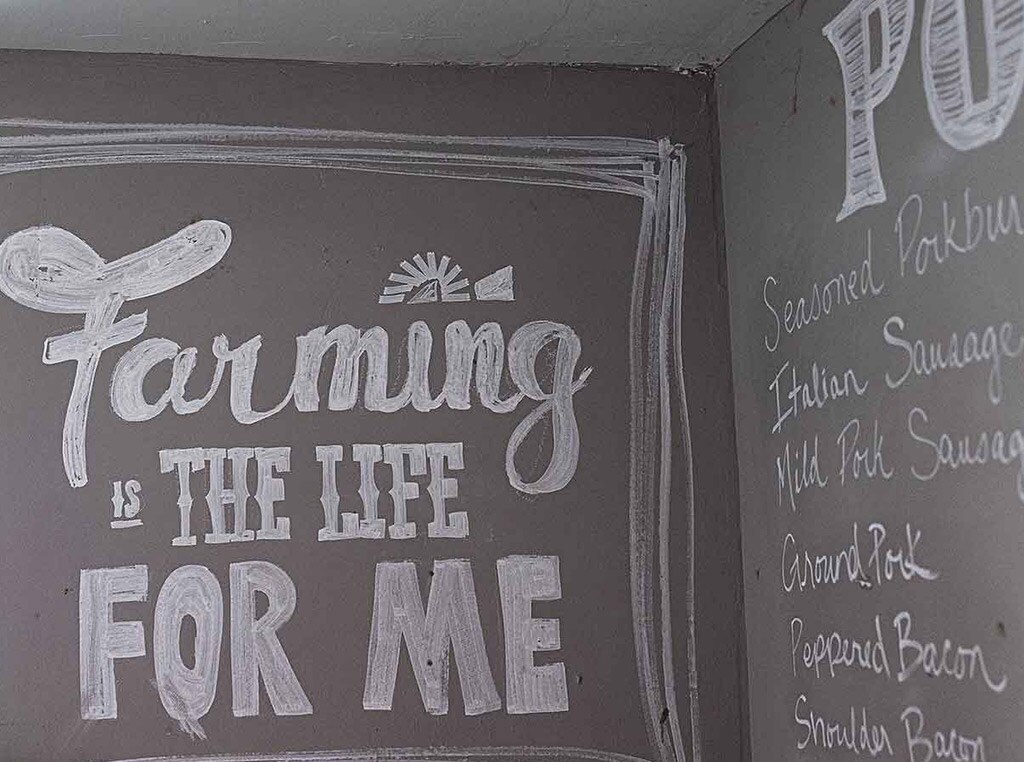 Farming
IS THE LIFE
FOR ME
PO
Seasoned Porkbur
Italian Sausage
Mild Pork Sausag
Ground Pork
Peppered Bacon
Shoulder Bacon